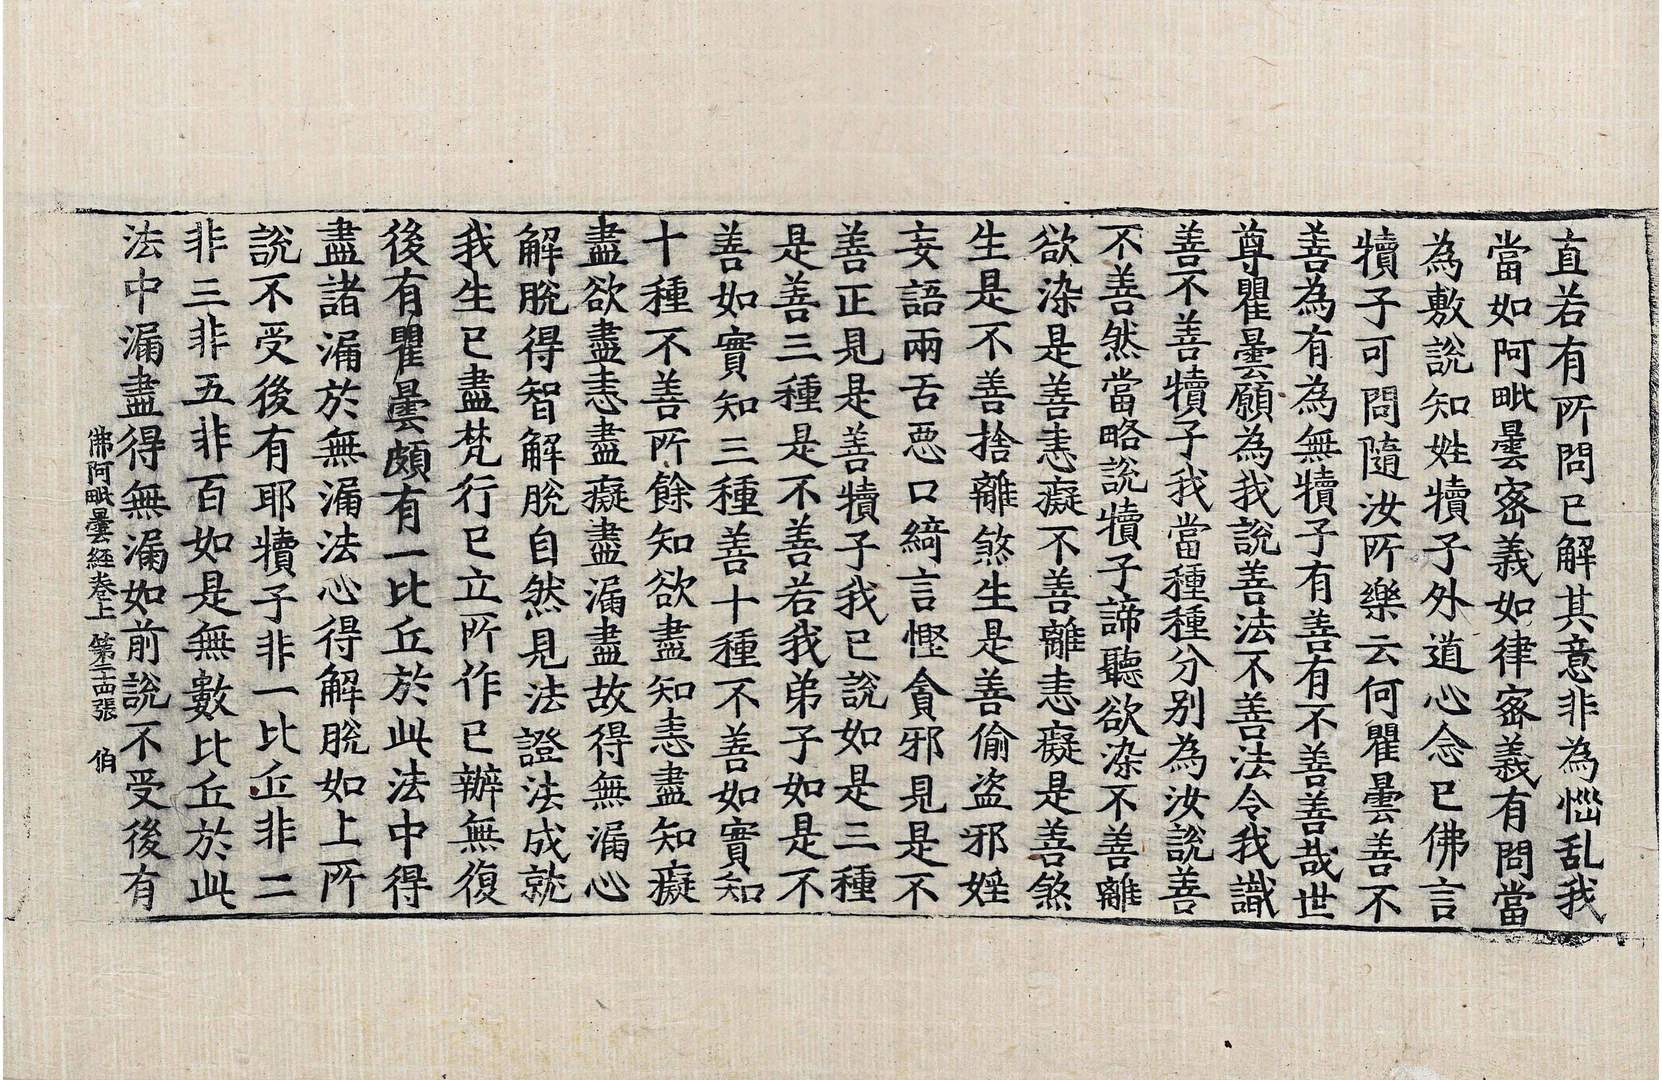 直若有所問已解其意非為惱乱我
當如阿毗曇宻義如律宻義有問當
為敷說知姓犢子外道心念已佛言
犢子可問隨汝所樂云何瞿曇善不
善為有為無犢子有善有不善善哉世
尊瞿曇願為我說善法不善法令我識
善不善犢子我當種種分別為汝說善
不善然當略說犢子諦聽欲染不善離
欲染是善恚癡不善離恚癡是善煞
生是不善捨離煞生是善偷盗邪婬
妄語兩舌惡口綺言慳貪邪見是不
善正見是善犢子我已說如是三種
是善三種是不善若我弟子如是不
善如實知三種善十種不善如實知
十種不善所餘知欲盡知恚盡知癡
盡欲盡恚盡癡盡漏盡故得無漏心
解脫得智解脫自然見法證法成就
我生已盡梵行已立所作已辦無復
後有瞿曇頗有一比丘於此法中得
盡諸漏於無漏法心得解脫如上所
說不受後有耶犢子非一比丘非二
非三非五非百如是無數比丘於此
法中漏盡得無漏如前說不受後有
佛阿毗曇經卷上 第二十四張 伯